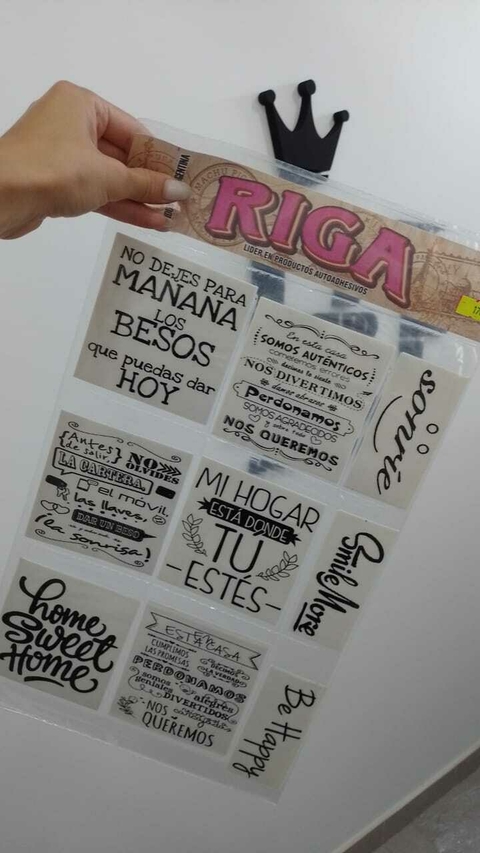 ARGENTINA
MACHU PIC
RIGA
LIDER EN PRODUCTOS AUTOADHESIVOS
NO DEJES PARA
MAÑANA
LOS
BESOS
que puedas dar
HOY
En esta casa
SOMOS AUTÉNTICOS
cometemos errores
decimos lo siento
NOS DIVERTIMOS
damos abrazos
Perdonamos
SOMOS AGRADECIDOS
y sobre todo
NOS QUEREMOS
sonríe
Antes
de salir,
NO
OLVIDES
LA CARTERA,
el móvil,
las llaves,
DAR UN BESO
¡la sonrisa!
MI HOGAR
ESTÁ DONDE
TÚ
-ESTÉS-
Smile More
home
Sweet
Home
EN
ESTA CASA
CUMPLIMOS
LAS PROMESAS
decimos
LA VERDAD
PERDONAMOS
somos
geniales
alegres
DIVERTIDOS
NOS
QUEREMOS
Be Happy